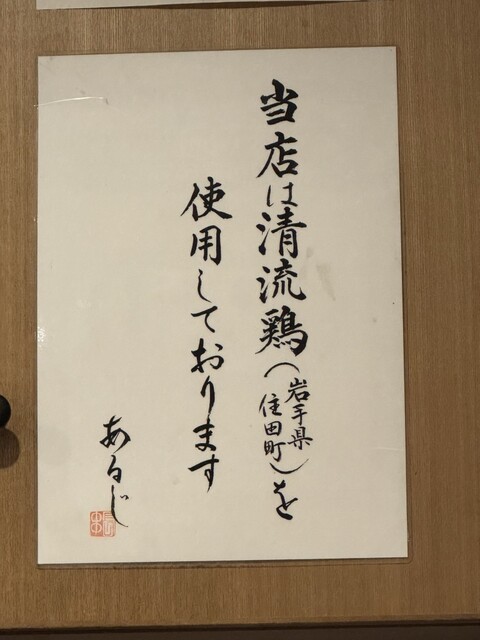 当店は清流鶏(岩手県住田町)を
使用しております
あるじ